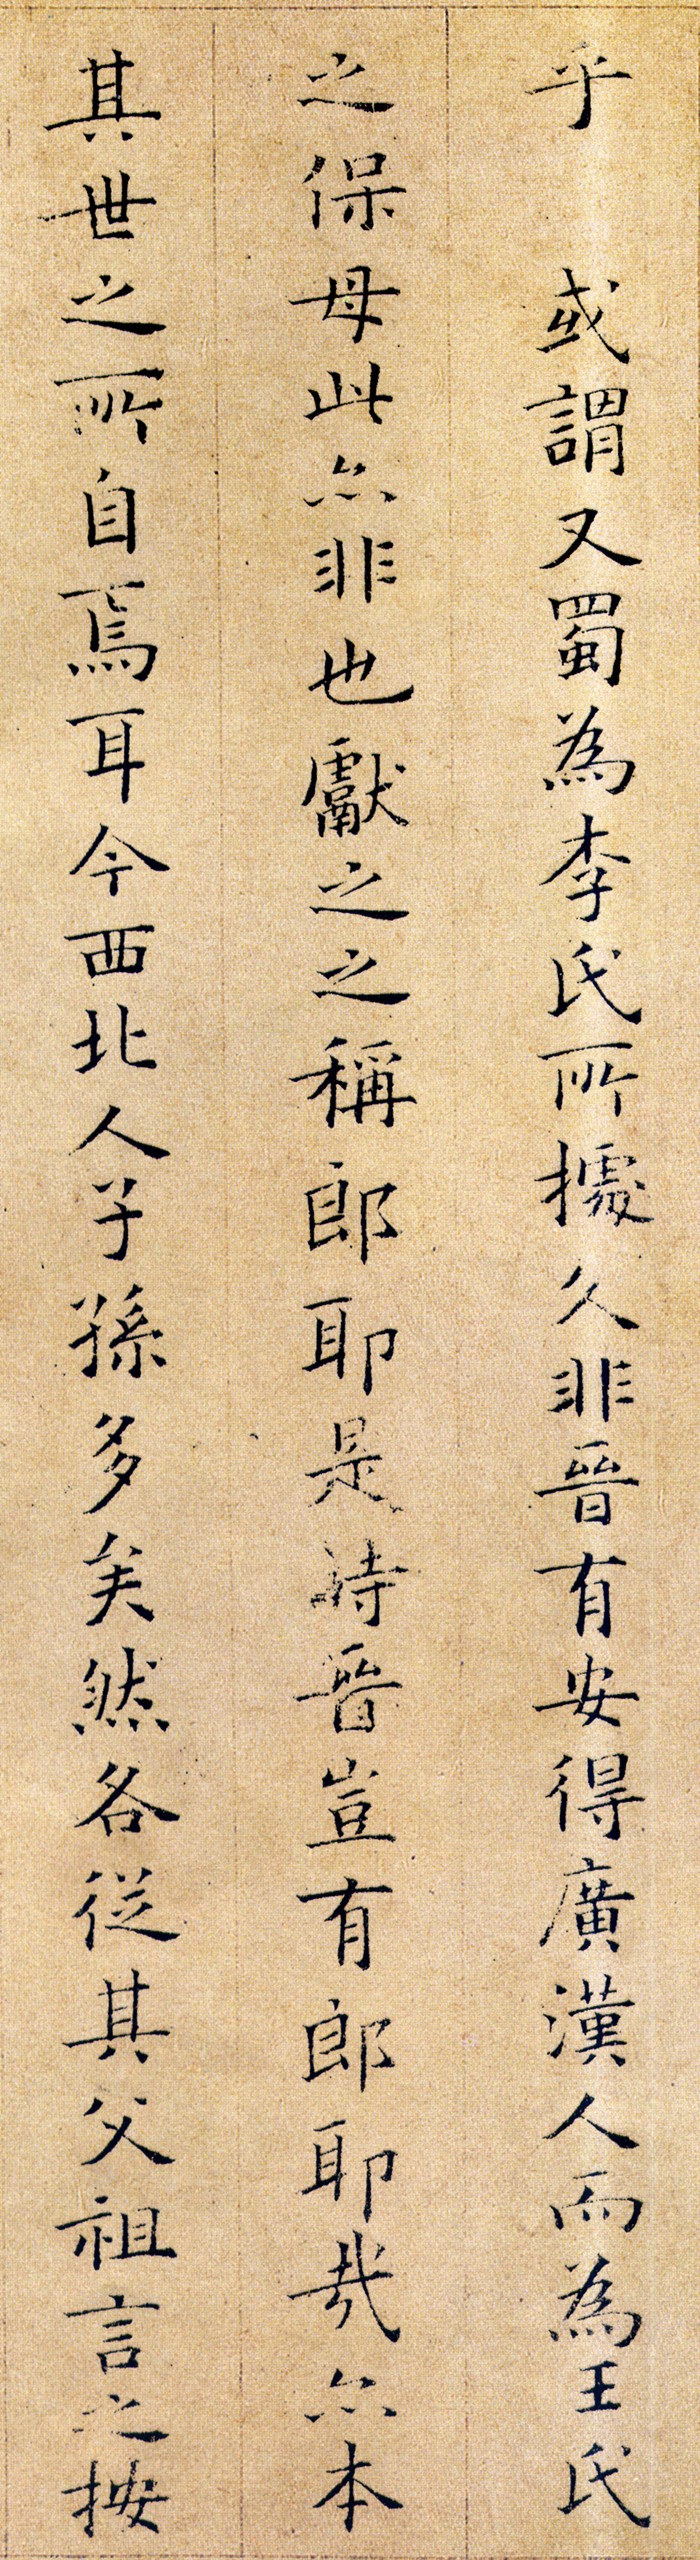 乎　或謂又蜀為李氏所據久非晉有安得廣漢人而為王氏
之保母此亦非也獻之之稱郎耶是時晉豈有郎耶哉亦本
其世之所自焉耳今西北人子孫多矣然各從其父祖言之按